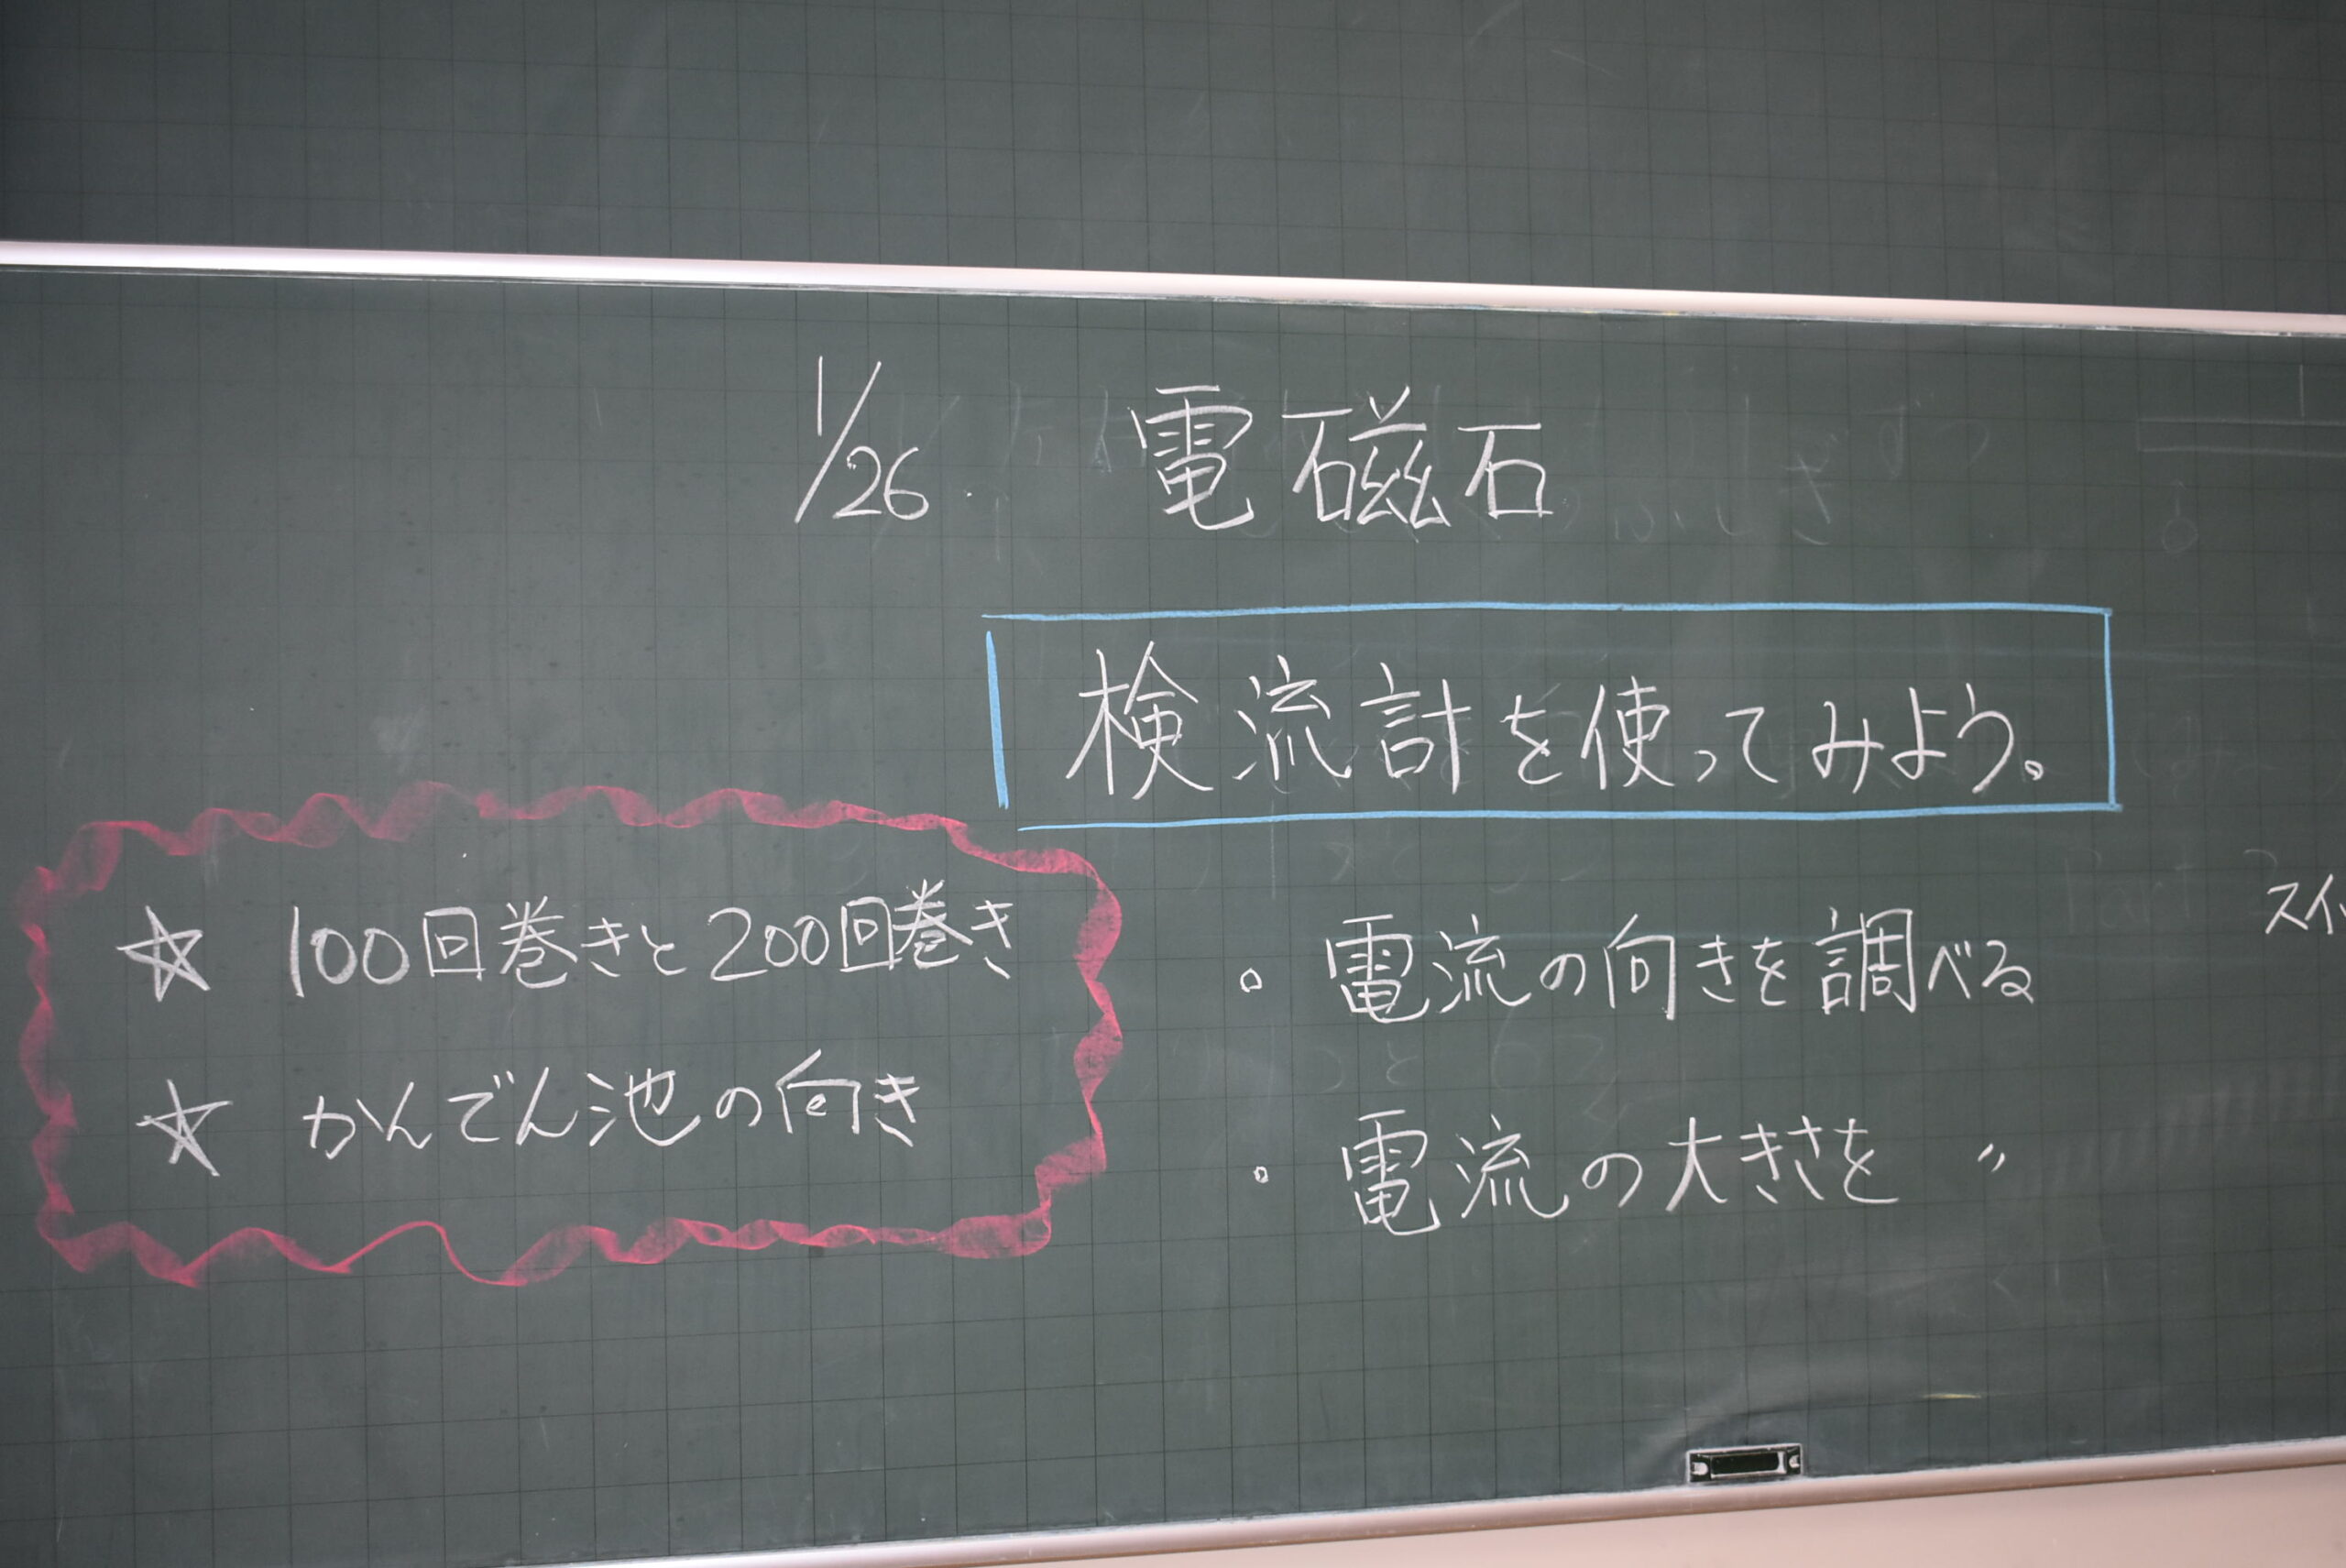 1/26 電磁石
検流計を使ってみよう。
☆ 100回巻きと200回巻き
☆ かんでん池の向き
・電流の向きを調べる
・電流の大きさを 〃
スイ